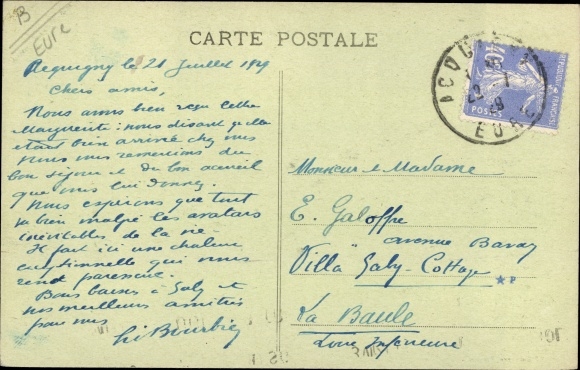 B
Eure
CARTE POSTALE
le 21 Juillet 1929
Chers amis,
Nous avons bien reçu lettre
Marguerite : nous disant qu'elle
était bien arrivée chez vous
Nous vous remercions du
bon séjour et du bon accueil
que vous lui donnez.
Nous espérons que tout
va bien malgré les avatars
inévitables de la vie
Il fait ici une chaleur
qui vous
rend paresseux.
Bons baisers à Gaby et
nos meilleurs amitiés
pour vous
Bourbier
REPUBLIQUE FRANÇAISE
40c
POSTES
EURE
Monsieur et Madame
E. Galoffre
avenue
Villa Gaby-Cottage
La Baule
Loire Inférieure